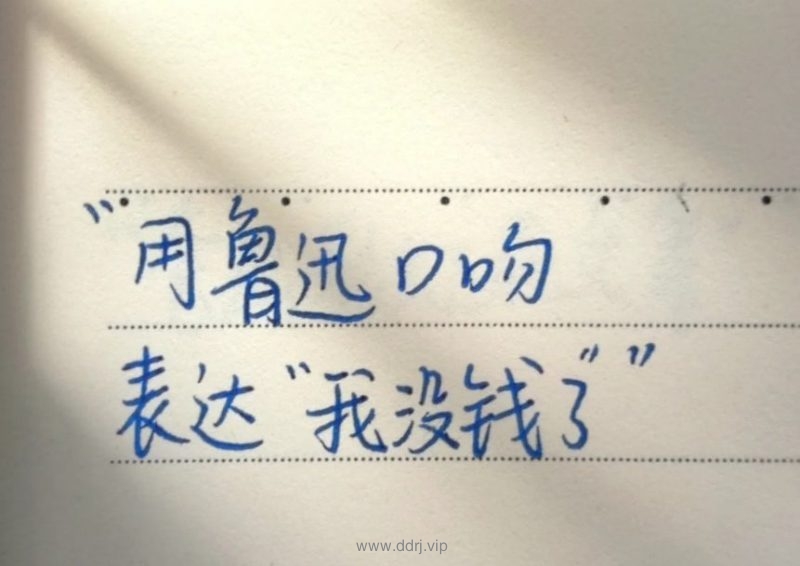 "用鲁迅口吻
表达"我没钱了""
www.ddrj.vip